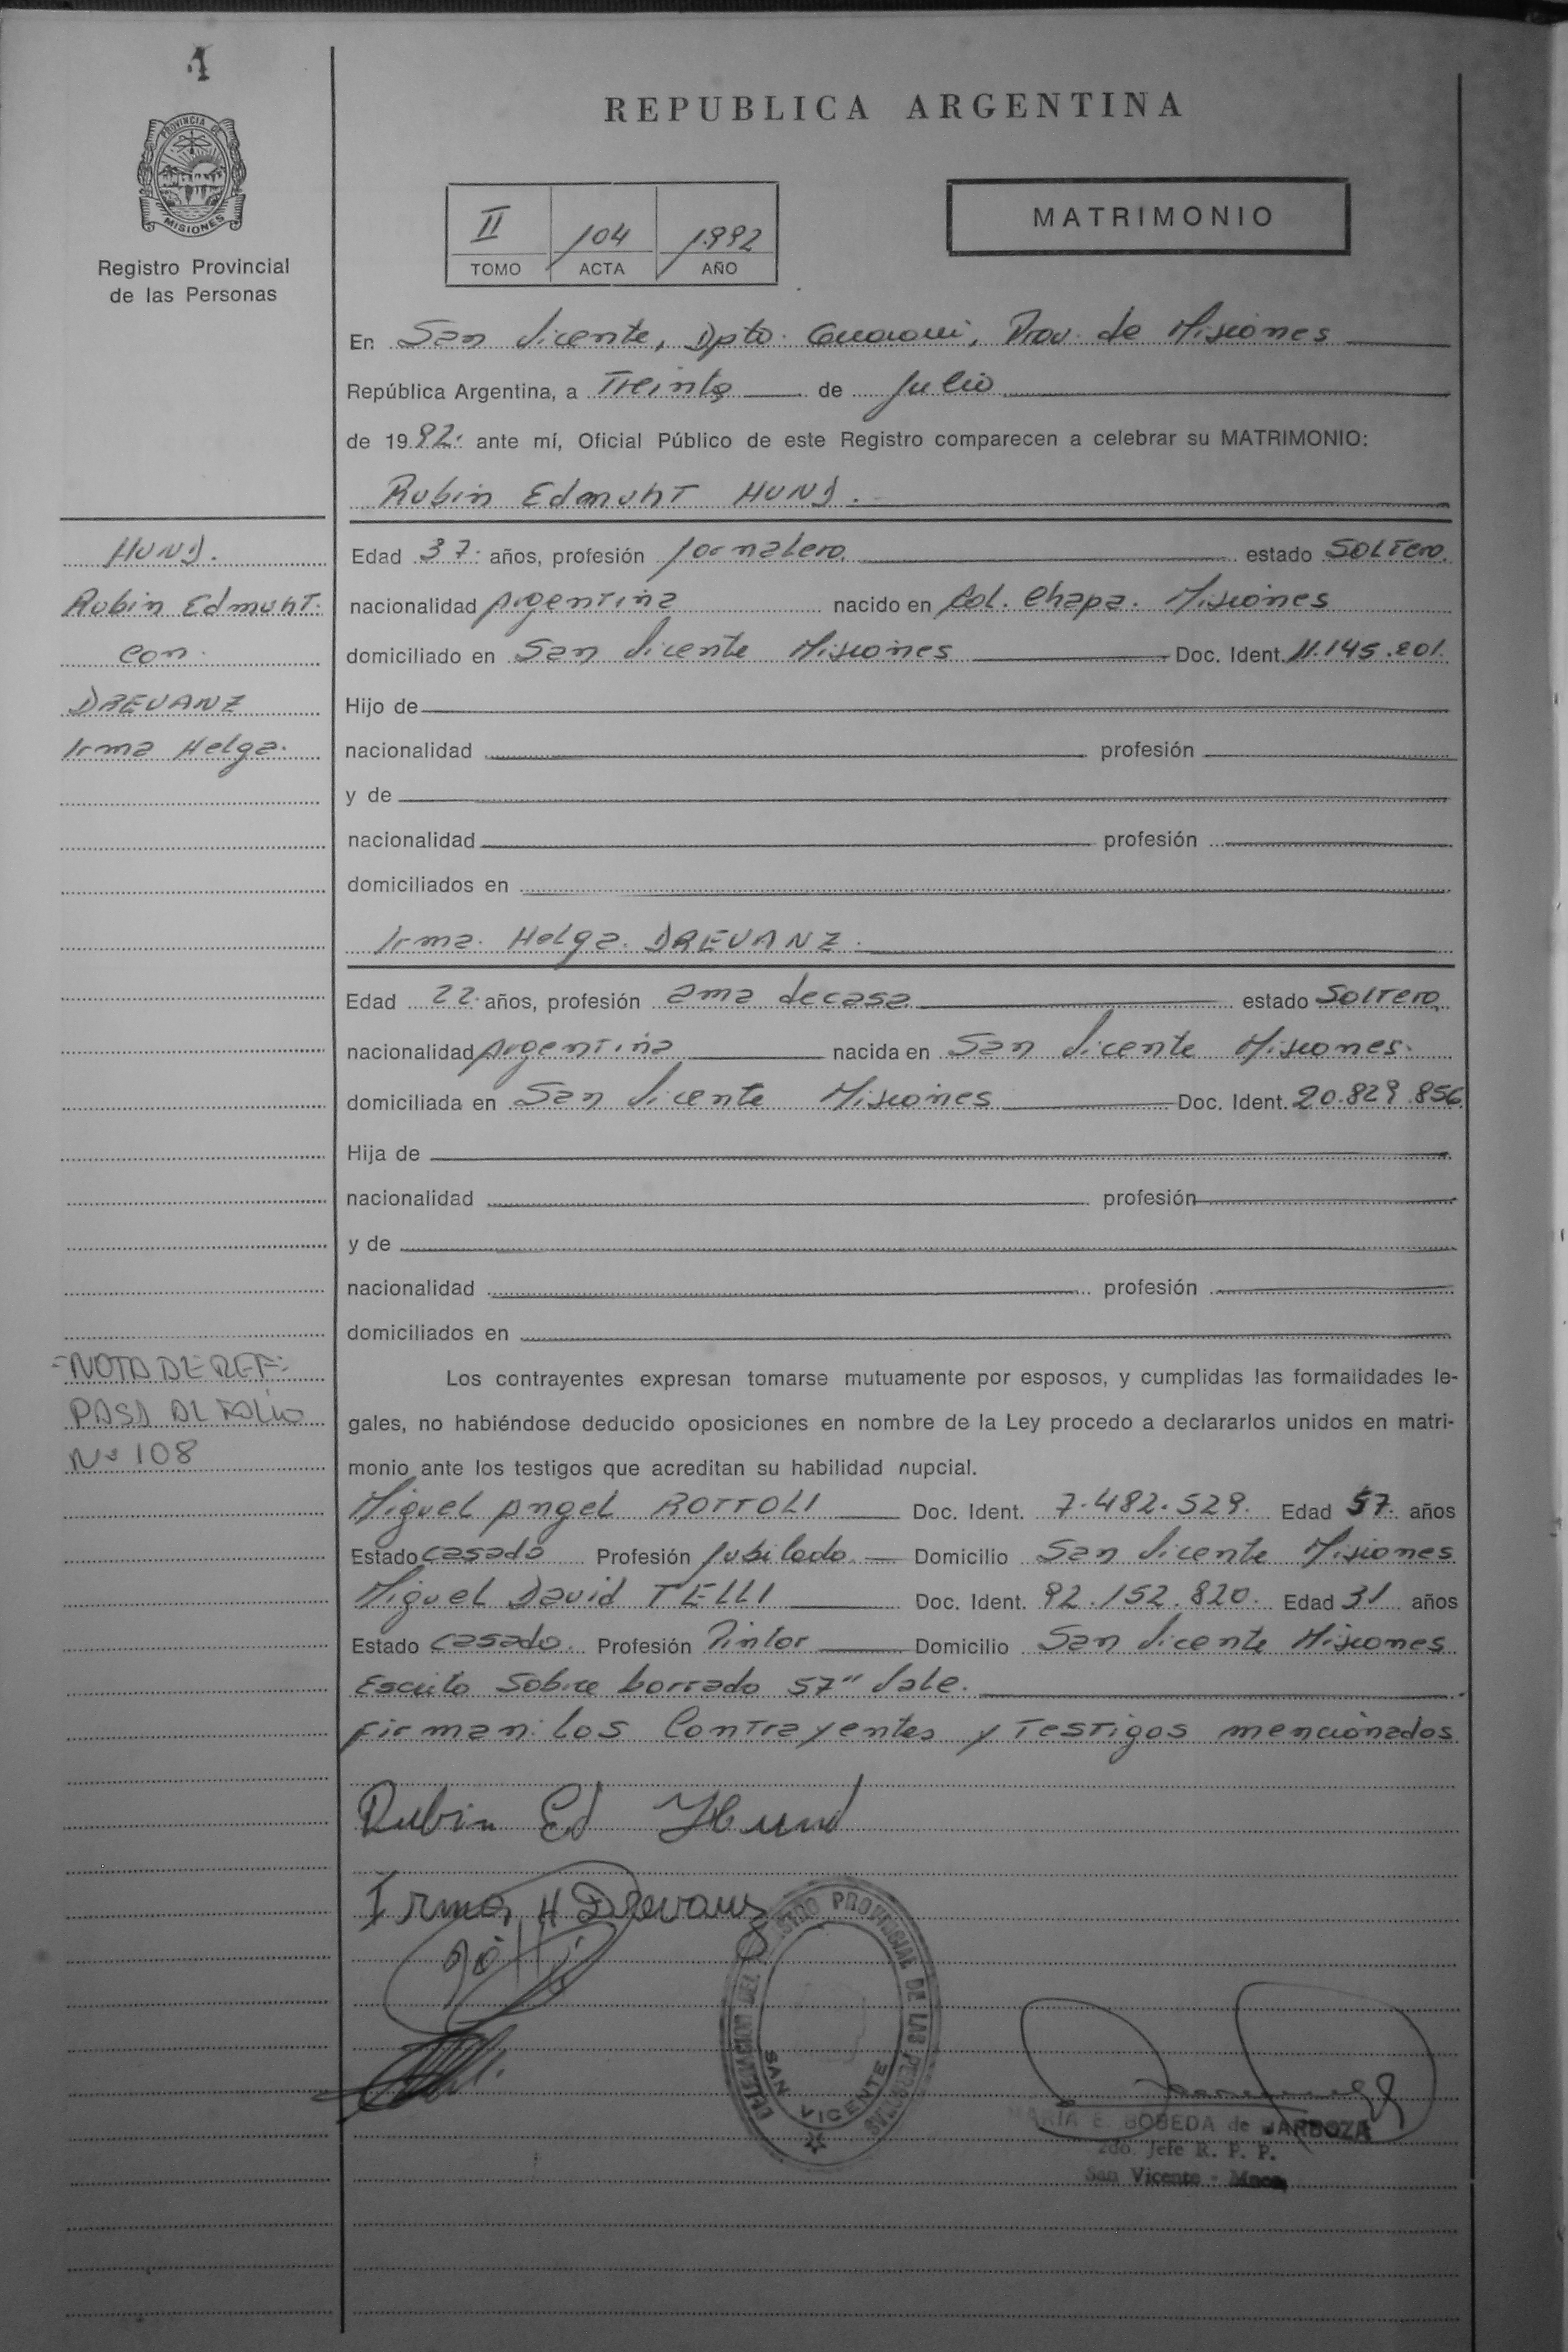 1
PROVINCIA DE
MISIONES
Registro Provincial
de las Personas
REPUBLICA ARGENTINA
II 104 1992
TOMO ACTA AÑO
MATRIMONIO
En San Vicente, Dpto. Guarani, Prov. de Misiones
República Argentina, a Treinta de Julio
de 1992. ante mí, Oficial Público de este Registro comparecen a celebrar su MATRIMONIO:
Rubin Edmunt HUND.
HUND.
Rubin Edmunt.
con.
DREVANZ
Irma Helga.
Edad 37. años, profesión Jornalero. estado Soltero.
nacionalidad Argentina nacido en Col. Chapa. Misiones
domiciliado en San Vicente Misiones Doc. Ident. 11.145.201.
Hijo de
nacionalidad profesión
y de
nacionalidad profesión
domiciliados en
Irma. Helga. DREVANZ.
Edad 22. años, profesión ama decasa estado Soltero
nacionalidad Argentina nacida en San Vicente Misiones.
domiciliada en San Vicente Misiones Doc. Ident. 20.829.856
Hija de
nacionalidad profesión
y de
nacionalidad profesión
domiciliados en
-NOTA DE REF:
PASA AL FOLIO
Nº 108
Los contrayentes expresan tomarse mutuamente por esposos, y cumplidas las formalidades le-
gales, no habiéndose deducido oposiciones en nombre de la Ley procedo a declararlos unidos en matri-
monio ante los testigos que acreditan su habilidad nupcial.
Miguel Angel ROTTOLI Doc. Ident. 7.482.529. Edad 57. años
Estado casado Profesión Jubilado. Domicilio San Vicente Misiones
Miguel David TELLI Doc. Ident. 92.152.820. Edad 31 años
Estado casado. Profesión Pintor Domicilio San Vicente Misiones
Escrito Sobre borrado 57" Vale.
Firman: los Contrayentes y Testigos mencionados
Rubin Ed Hund
Irma H Drevanz
DELEGACION DEL REGISTRO PROVINCIAL DE LAS PERSONAS
SAN VICENTE
MARIA E. BOBEDA de BARBOZA
2do. Jefe R. P. P.
San Vicente - Mnes